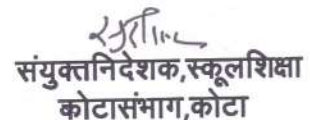 संयुक्तनिदेशक,स्कूलशिक्षा
कोटासंभाग,कोटा